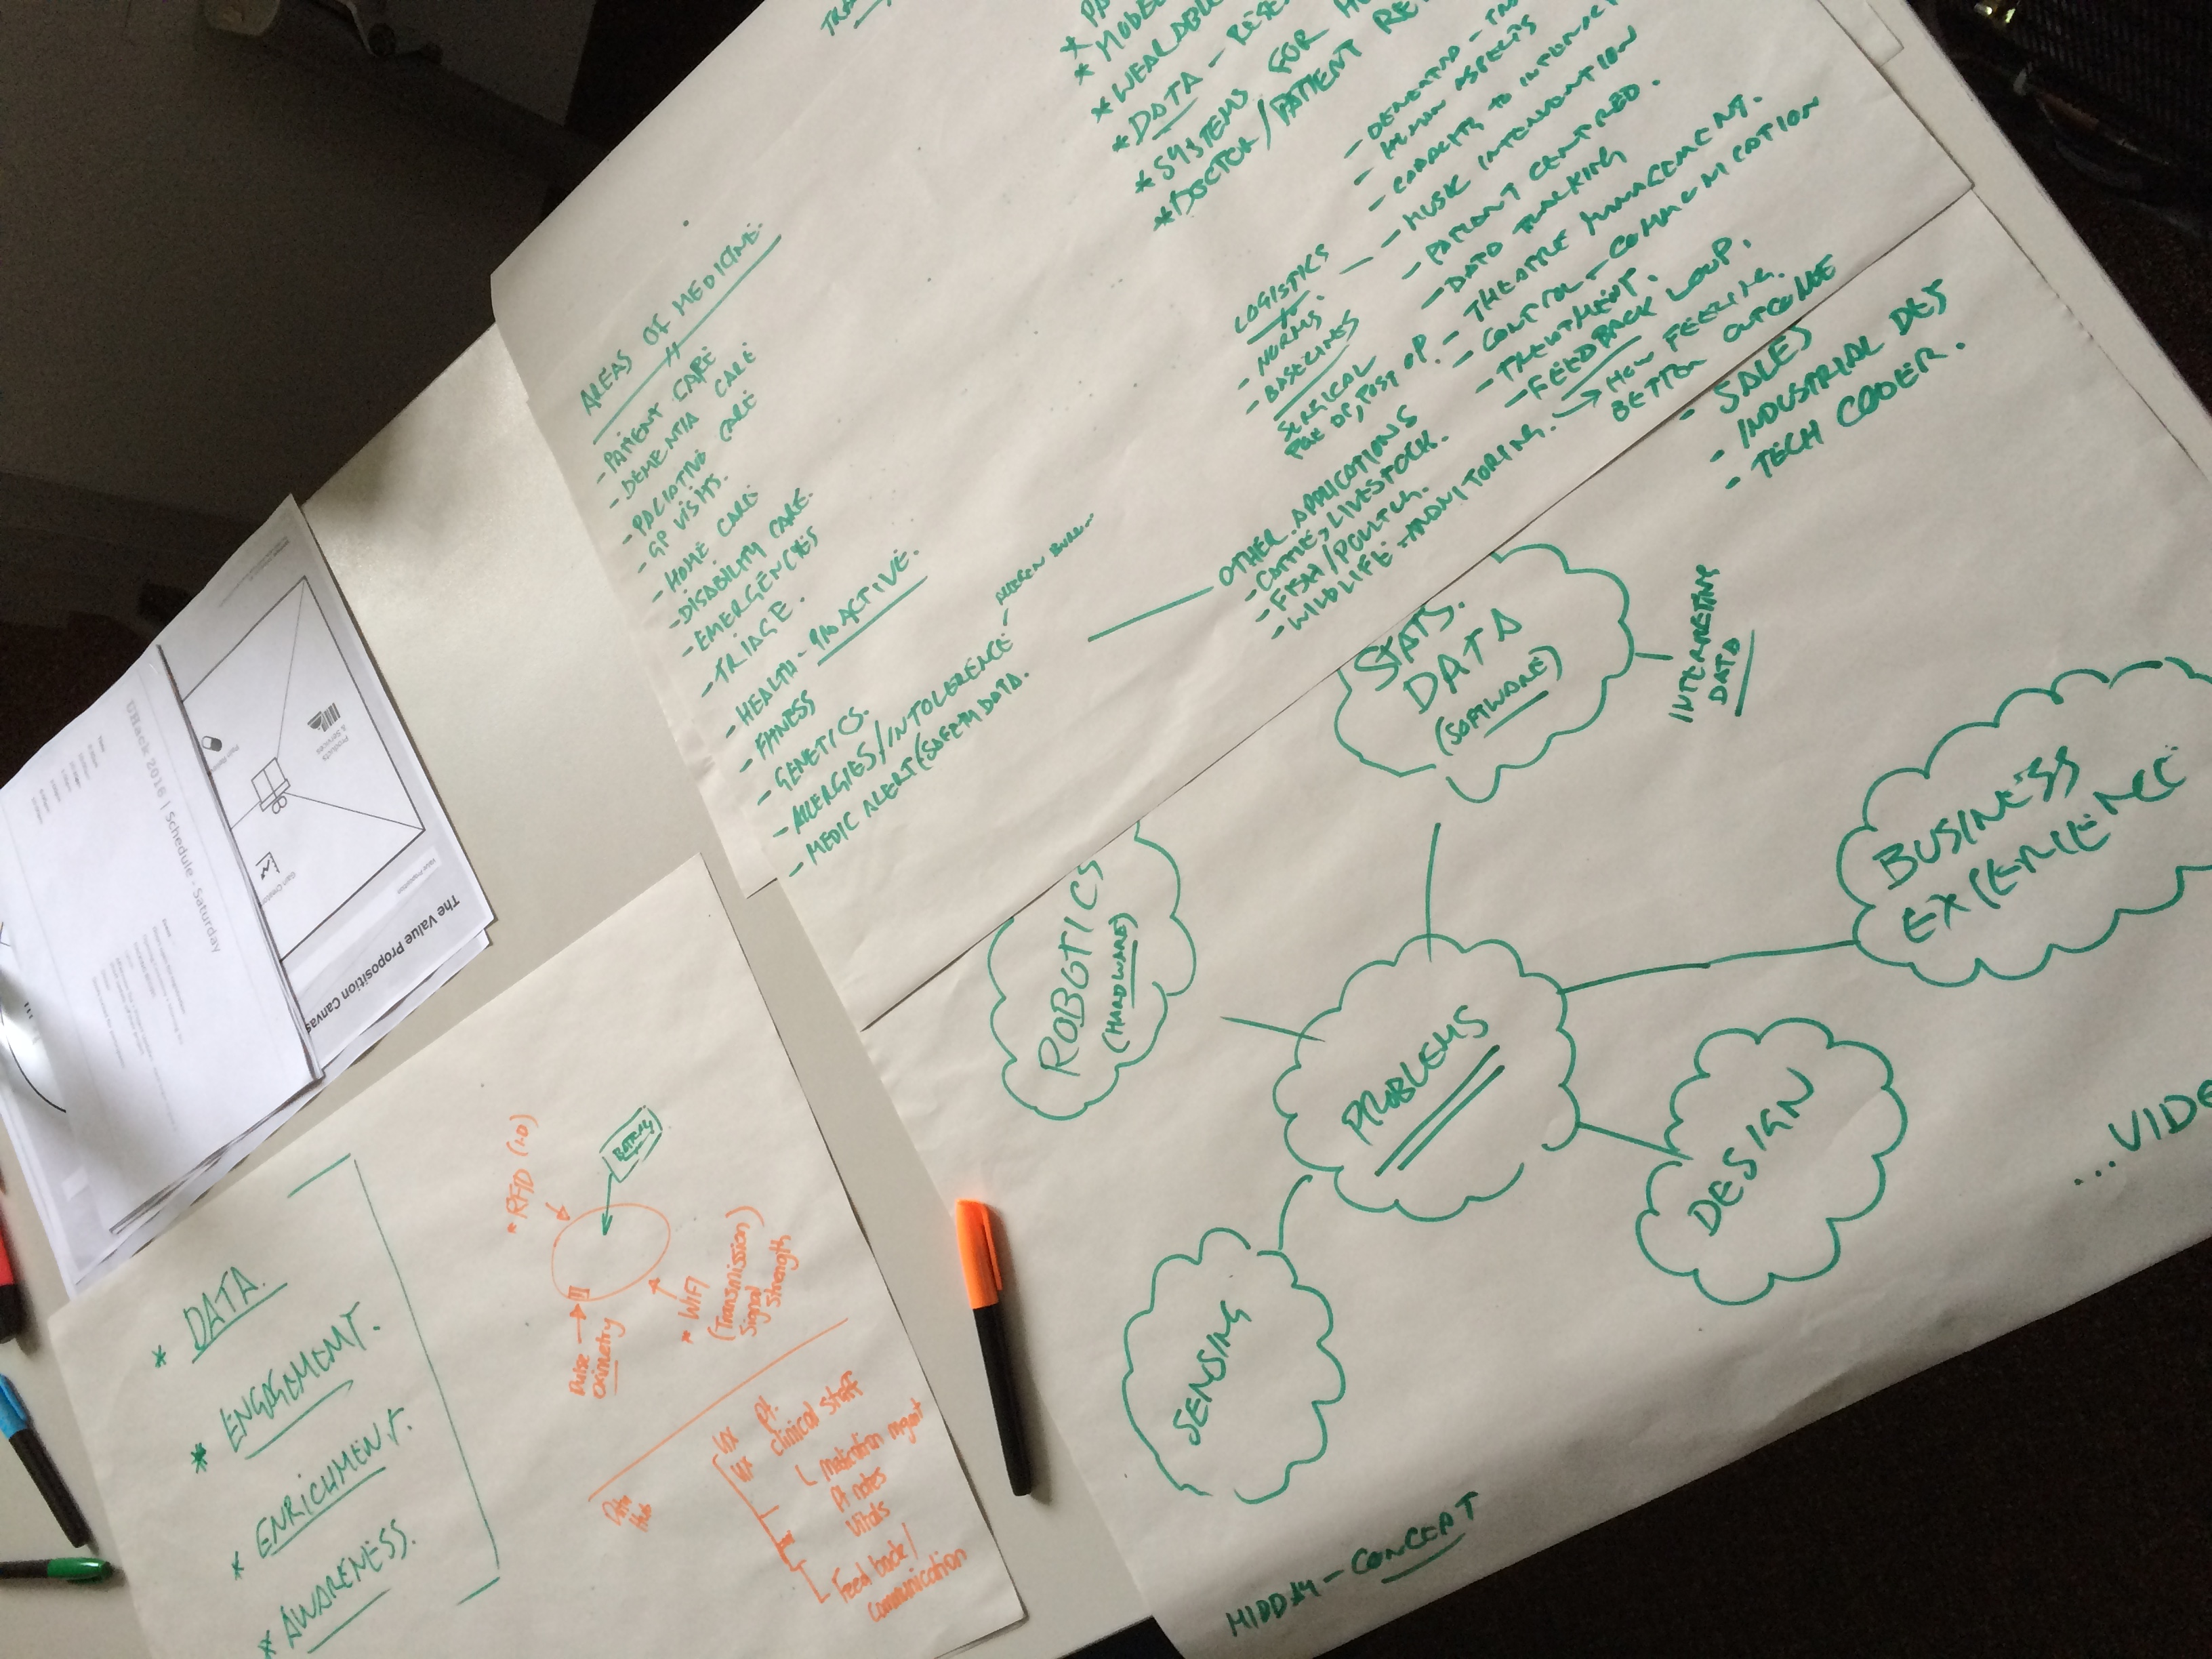 * WEARABLE
* DATA
* SYSTEMS FOR
* DOCTOR/PATIENT
AREAS OF MEDICINE.
- PATIENT CARE
- DEMENTIA CARE
- PALIATIVE CARE
- GP VISITS.
- HOME CARE
- DISABILITY CARE.
- EMERGENCYS
- TRIAGE.
- HEALTH - PROACTIVE.
- FITNESS
- GENETICS.
- ALLERGIES/INTOLERENCE -
- MEDIC ALERT (SAFETY DATA.
LOGISTICS
- NORMS.
- BASELINES
SURGICAL
PRE OP, POST OP.
HUMAN ASPECTS
- MUSIC INTERVENTION
- PATIENT CENTRED.
- DATA TRACKING
- THEATRE MANAGEMENT.
- CONTROL - COMMUNICATION
- TREATMENT.
- FEEDBACK LOOP.
→ HOW FEELING.
BETTER OUTCOME
OTHER APPLICATIONS
- CATTLE, LIVESTOCK.
- FISH/POULTRY.
- WILDLIFE - MONITORING.
- SALES
- INDUSTRIAL DES
- TECH CODER.
STATS.
DATA
(SOFTWARE)
INTERPRETING
DATA
ROBOTICS
(HARDWARE)
BUSINESS
EXPERIENCE
PROBLEMS
DESIGN
SENSING
...VIDE
MIDDAY - CONCEPT
The Value Proposition Canvas
Value Proposition
Gain Creators
Products
& Services
UHack 2016 | Schedule - Saturday
* DATA.
* ENGAGEMENT.
* ENRICHMENT.
* AWARENESS.
* RFID (I.D)
BATTERY
Pulse
Oximetry
* WIFI
(Transmission)
Signal
Strength
Data
Hub
UX Pt.
UX Clinical Staff
Medication mgmt
Pt notes
Vitals
Feed back/
Communication